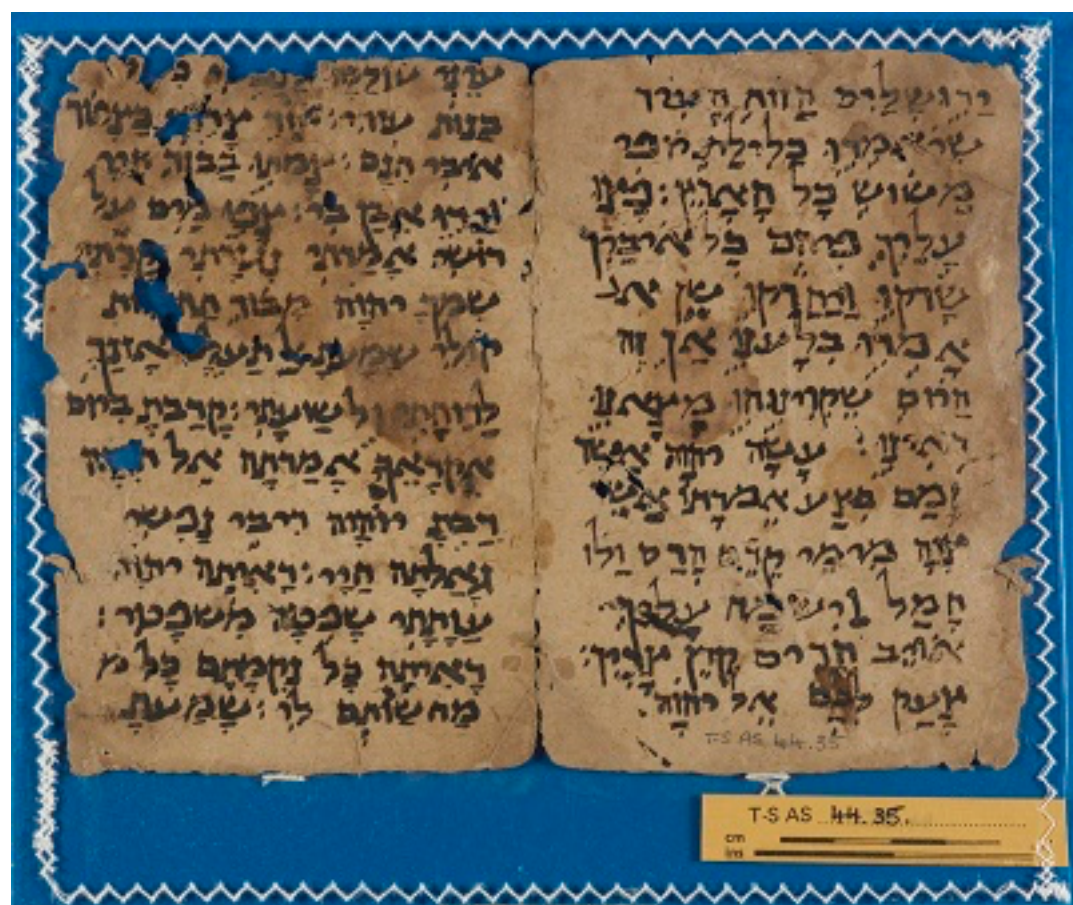 ירושלים הזות העיר
שיאמרו כלילת יפי
משוש כל הארץ: פצו
עליך פיהם כל איביך
שרקו ויחרקו שן אל
אמרו בלענו אך זה
היום שקוינוהו מצאנו
ראינו: עשה יהוה אשר
זמם בצע אמרתו אשר
צוה מימי קדם הרס ולו
חמל וישמח עליך
אויב הרים קרן צריך:
צעק לבם אל יהוה
T-S AS 44.35
עיני עוללה
בנות עירי: צוד כצפור
אויבי חנם: צמתו בבור חיי
וידו אבן בי: צפו מים על
רושי אמרתי נגזרתי קרתי
שמך יהוה מבור תחתיות
קולי שמעת אל תעלם אזנך
לרוחתי ולשועתי: קרבת ביום
אקראך אמרתה אל תירה
רבת יהוה ריבי נפשי
גאלתה חיי: ראיתה יהוה
עותתי שפטה משפטי:
ראיתה כל נקמתם כל מ
מחשותם לי: שמעת
T-S AS 44.35.
cm
ins